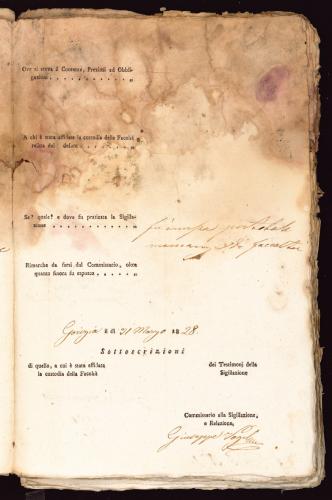 Ove si trova il Contante, Preziosi ed Obbli-
gazioni . . . . . . . . . . . . „
A chi è stata affidata la custodia della Facoltà
relitta del defunto . . . . . . . . . „
Se? quale? e dove fu praticata la Sigilla-
zione . . . . . . . . . . . . . „
mancan
Rimarche da farsi dal Commissario, oltre
quanto finora fu esposto . . . . . . „
Gorizia li 31 Marzo 1828.
Sottoscrizioni
di quello, a cui è stata affidata
la custodia della Facoltà
dei Testimonj della
Sigillazione
Commissario alla Sigillazione,
e Relazione,
Giuseppe